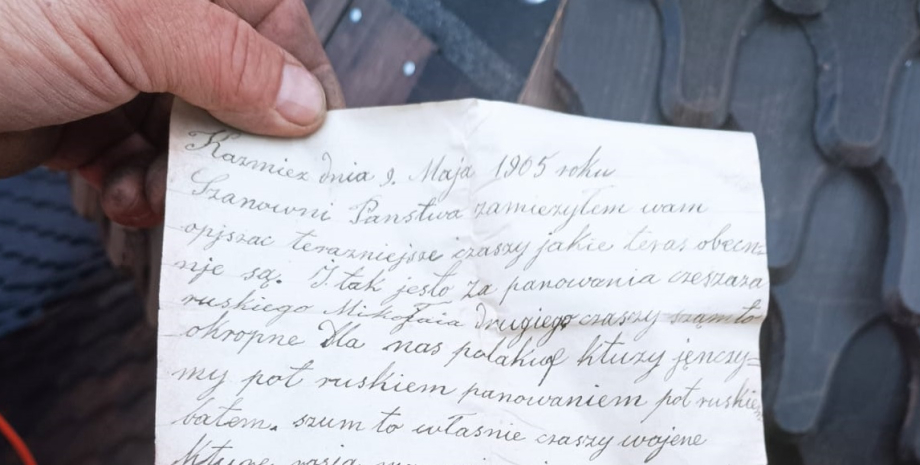 Kazmiez dnia 9. Maja 1905 roku
Szanowni Państwa zamiezylem wam
opjszac terazniejsze czaszy jakie teras obecn=
nje są. I tak jesto za panowania czeszaza
ruskiego Mikołaia drugiego czaszy szamto
okropne Dla nas polakuf ktuzy jęnczy=
my pot ruskiem panowaniem pot ruskiem
batem. szum to własnie czaszy wojene
kture rosja